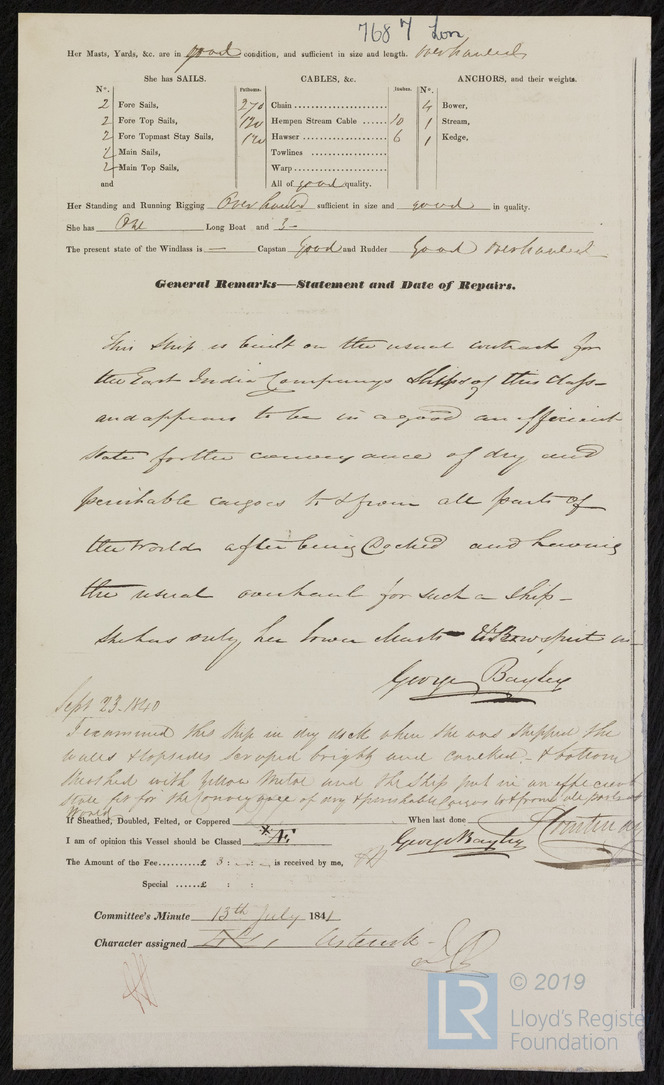 7687 Lon
Her Masts, Yards, &c. are in good condition, and sufficient in size and length. Overhauled
She has SAILS. CABLES, &c. ANCHORS, and their weights.
N°. Fathoms. Inches. N°.
2 Fore Sails, 270 Chain 4 Bower,
2 Fore Top Sails, 120 Hempen Stream Cable 10 1 Stream,
2 Fore Topmast Stay Sails, 120 Hawser 6 1 Kedge,
2 Main Sails, Towlines
2 Main Top Sails, Warp
and All of good quality.
Her Standing and Running Rigging Overhauled sufficient in size and good in quality.
She has One Long Boat and 3 –
The present state of the Windlass is — Capstan Good and Rudder Good Overhauled
General Remarks—Statement and Date of Repairs.
This Ship is built on the usual contract for
the East India Companys Ships of this class –
and appears to be in a good an efficient
state for the conveyance of dry and
perishable cargoes to & from all parts of
the World after being Docked and having
the usual overhaul for such a Ship –
She has only her lower Masts & Bowsprit in
George Bayley
Sept 23. 1840
I examined this ship in dry dock when she was stripped the
wales & topsides scraped bright and caulked – & bottom
sheathed with yellow Metal and the Ship put in an efficient
state fit for the conveyance of dry & perishable cargoes to & from all parts of
World
If Sheathed, Doubled, Felted, or Coppered When last done
I am of opinion this Vessel should be Classed Æ George Bayley
The Amount of the Fee......£ 3 : – : – is received by me,
Special ......£ : :
Committee's Minute 13th July 1841
Character assigned Asterisk –
LR © 2019
Lloyd's Registe
Foundation